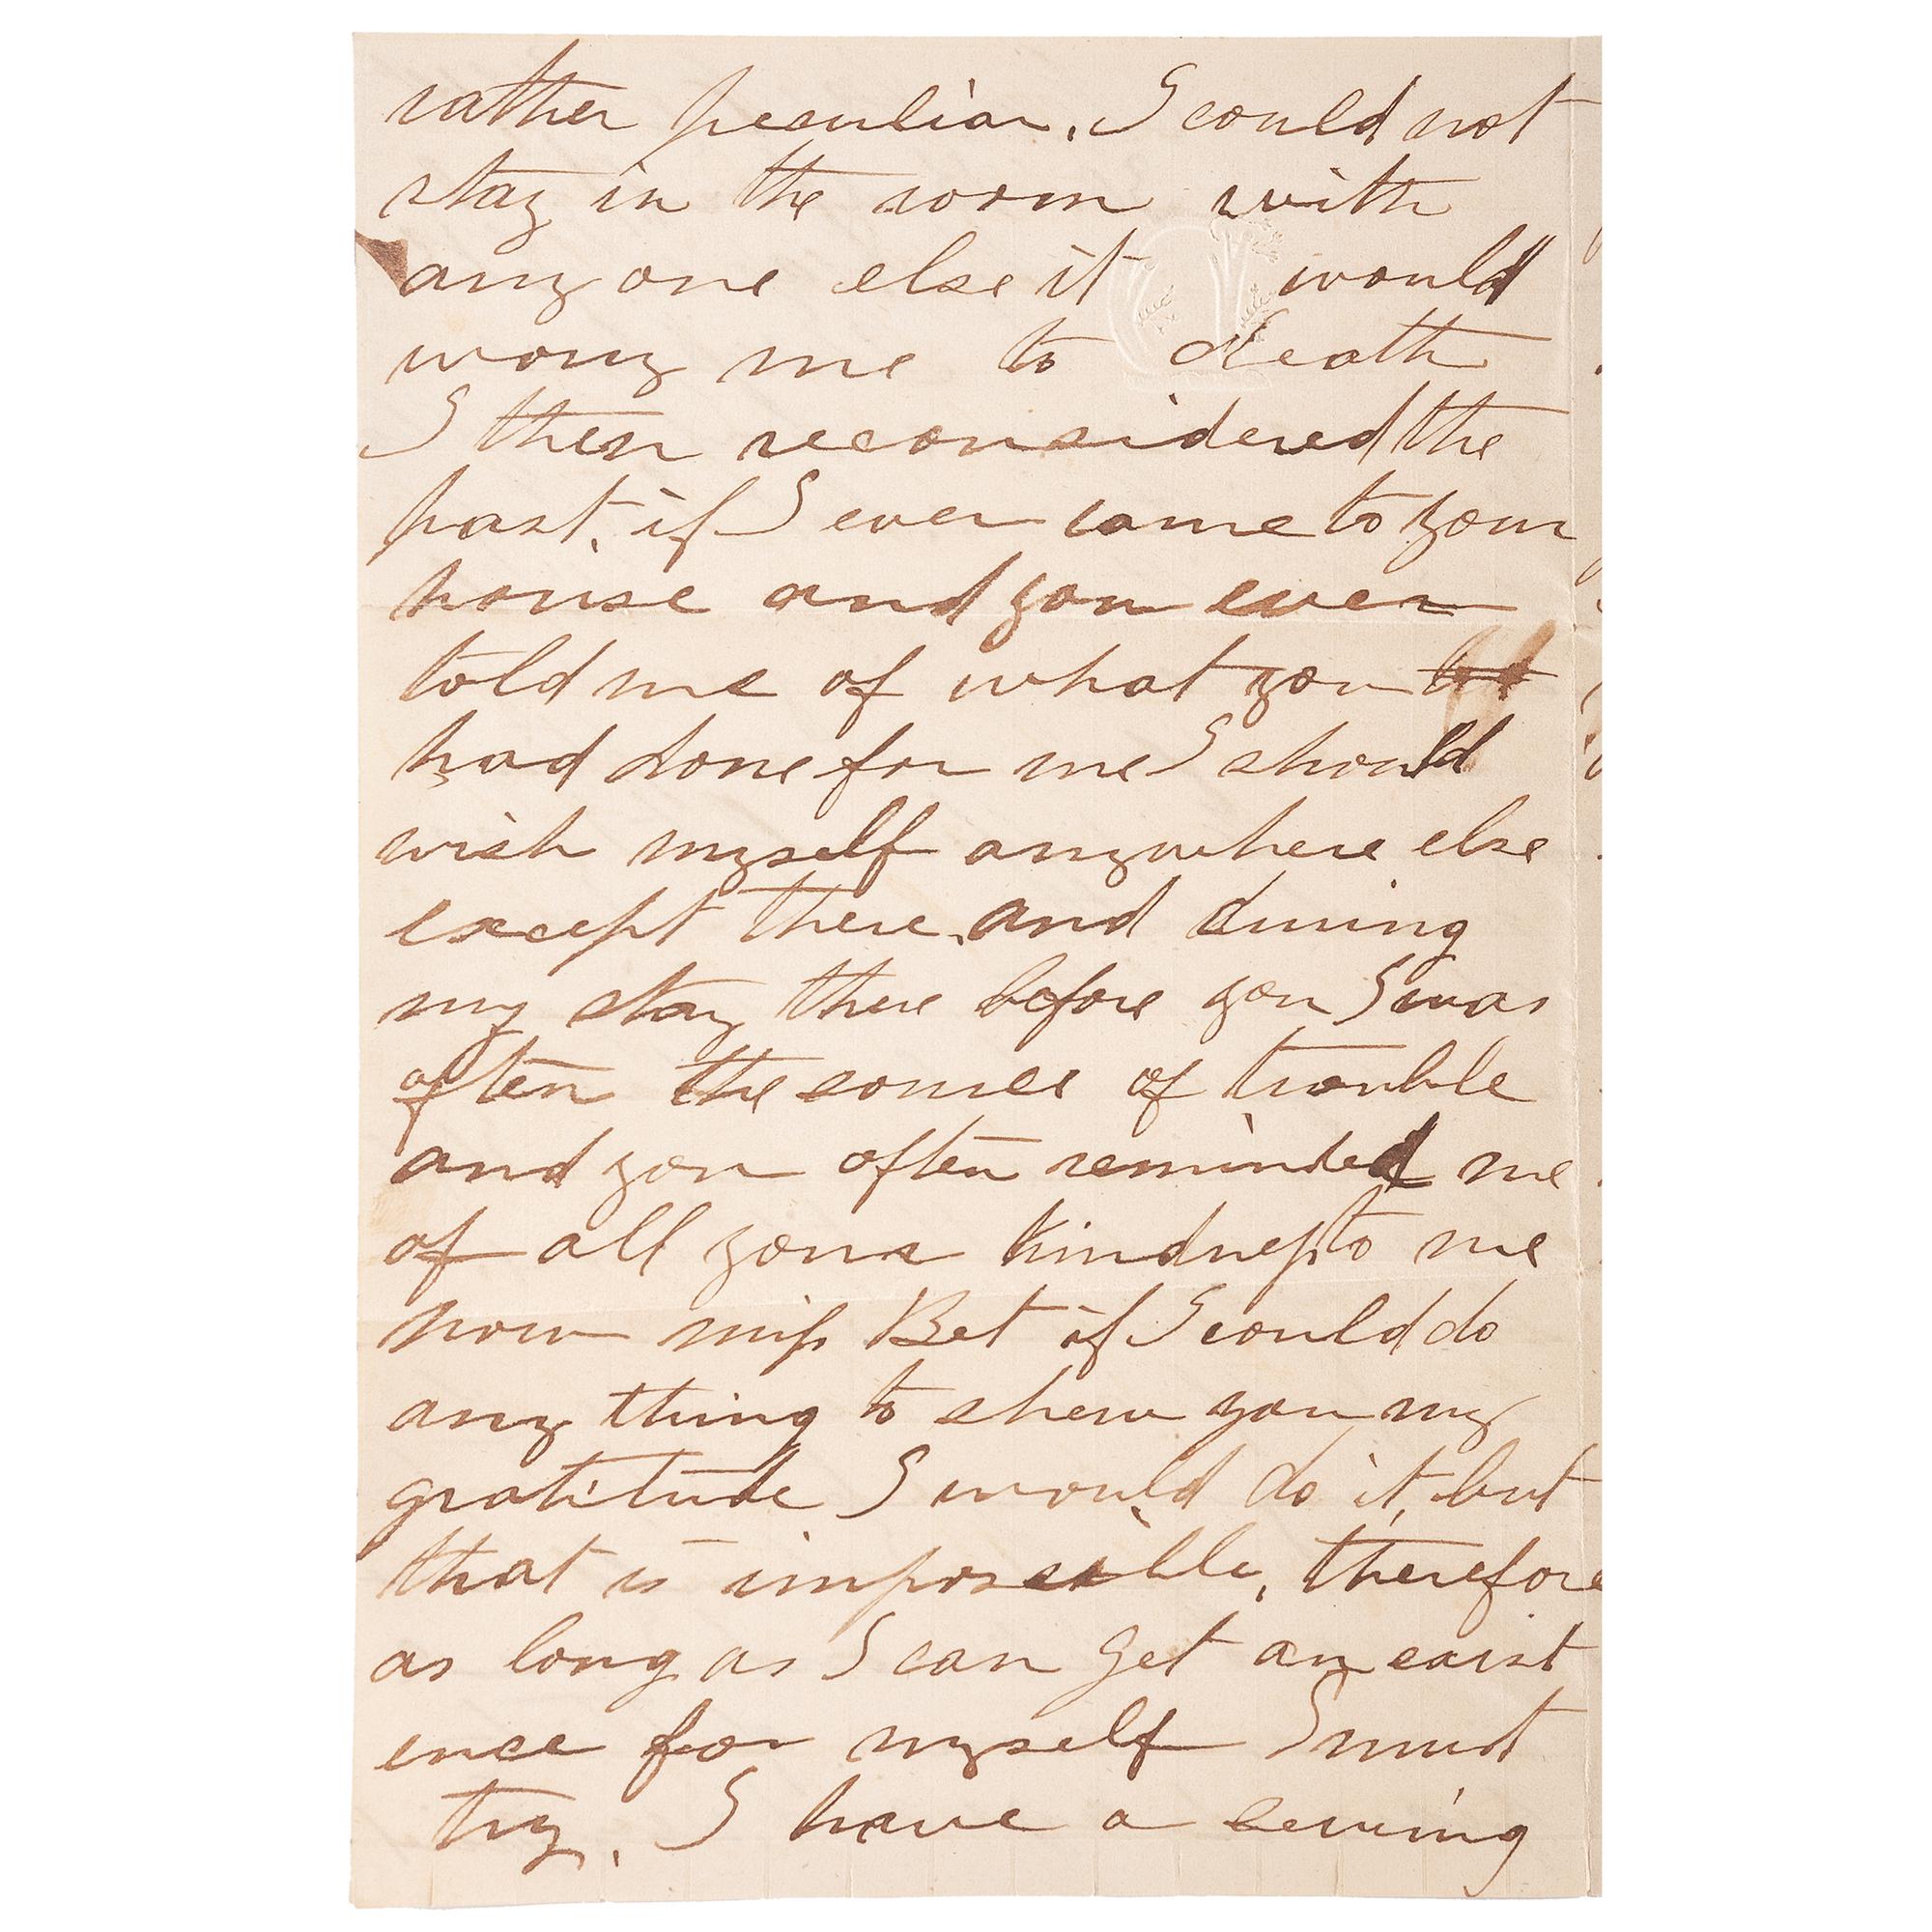 rather peculiar. I could not
stay in the room with
any one else it would
worry me to death
I then reconsidered the
past, if I ever came to your
house and you ever
told me of what you
had done for me I should
wish myself anywhere else
except there, and during
my stay there before you I was
often the source of trouble
and you often reminded me
of all your kindness to me
now miss Bet if I could do
any thing to shew you my
gratitude I would do it, but
that is impossible, therefore
as long as I can get an exist
ence for myself I must
try. I have a sewing